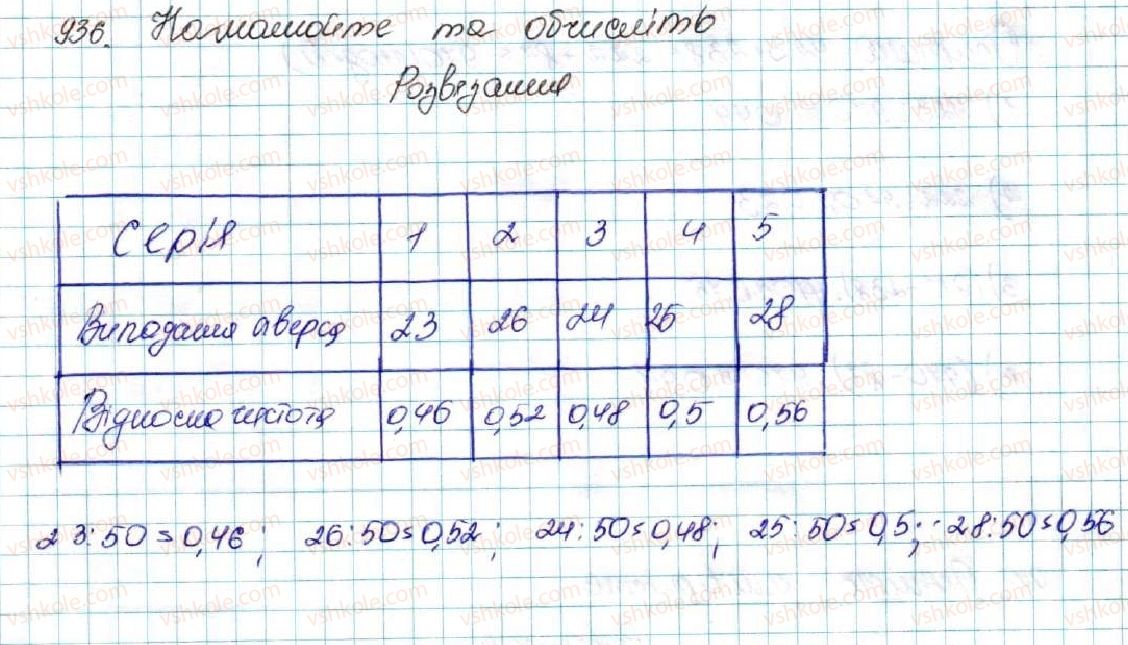 936. Намалюйте та обчисліть
Розвязання
Серія 1 2 3 4 5
Випадання аверса 23 26 24 25 28
Відносна частота 0,46 0,52 0,48 0,5 0,56
23:50=0,46; 26:50=0,52; 24:50=0,48; 25:50=0,5; 28:50=0,56
vshkole.com